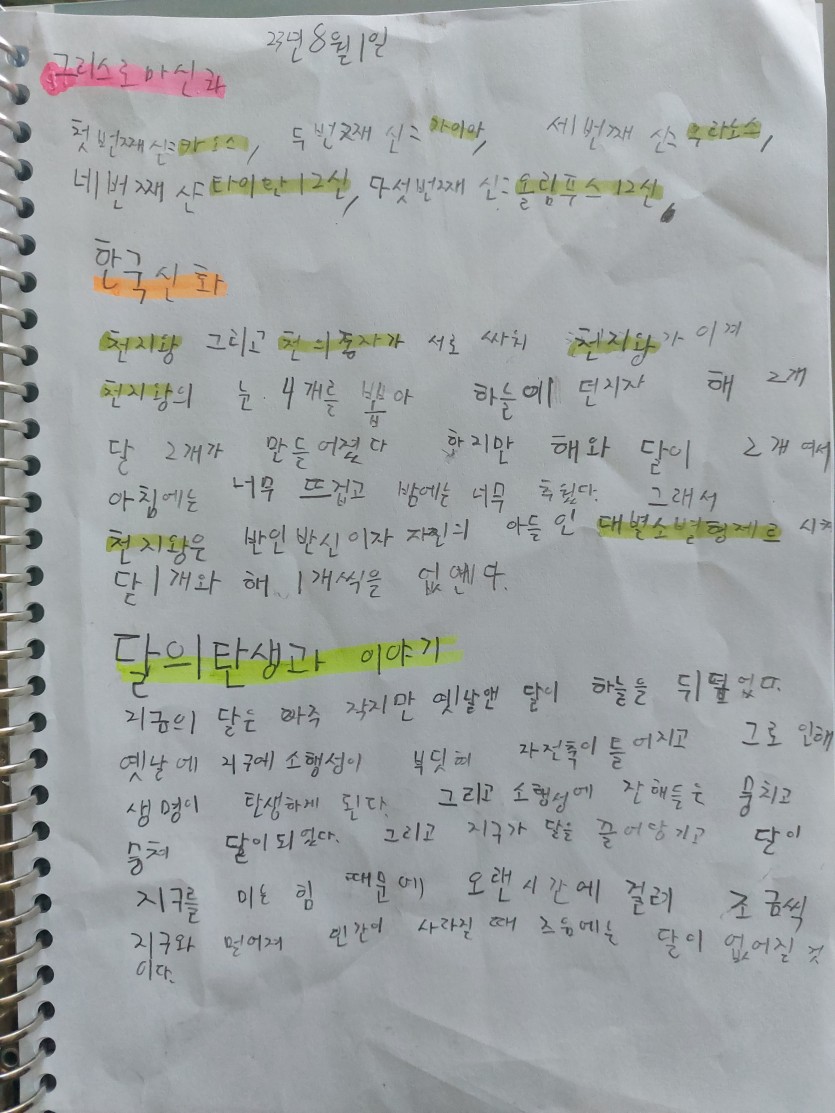 23년 8월 1일
그리스로마신화
첫번째신은카오스, 두번째 신은 가이아, 세번째 신은 우라노스,
네번째 신은타이탄12신, 다섯번째 신은올림푸스12신,
한국신화
천지왕 그리고 천의동자가 서로 싸워 천지왕가 이겨
천지왕의 눈 4개를 뽑아 하늘에 던지자 해 2개
달 2개가 만들어졌다 하지만 해와 달이 2개 여서
아침에는 너무 뜨겁고 밤에는 너무 추웠다. 그래서
천지왕은 반인반신이자 자신의 아들인 대별소별형제를 시켜
달1개와 해 1개씩을 없엔다.
달의탄생과 이야기
지금의 달은 아주 작지만 옛날앤 달이 하늘을 뒤덮었다.
옛날에 지구에 소행성이 부딧혀 자전축이 틀어지고 그로 인해
생명이 탄생하게 된다. 그리고 소행성에 잔해들은 뭉치고
뭉쳐 달이되었다. 그리고 지구가 달을 끌어당기고 달이
지구를 미는 힘 때문에 오랜시간에 걸려 조금씩
지구와 멀어져 인간이 사라질 때 즈음에는 달이 없어질 것
이다.